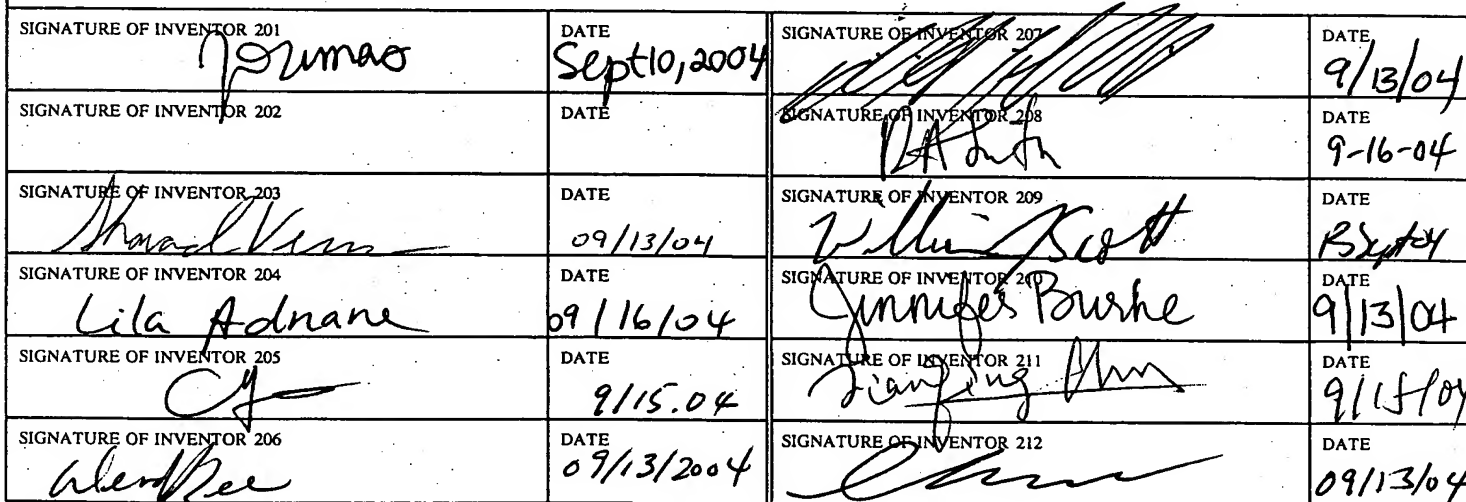 SIGNATURE OF INVENTOR 201 DATE Sept 10, 2004
SIGNATURE OF INVENTOR 207 DATE 9/13/04
SIGNATURE OF INVENTOR 202 DATE
SIGNATURE OF INVENTOR 208 DATE 9-16-04
SIGNATURE OF INVENTOR 203 DATE 09/13/04
SIGNATURE OF INVENTOR 209 William Scott DATE 13 Sept 04
SIGNATURE OF INVENTOR 204 Lila Adnane DATE 09/16/04
SIGNATURE OF INVENTOR 210 Jennifer Burke DATE 9/13/04
SIGNATURE OF INVENTOR 205 DATE 9/15.04
SIGNATURE OF INVENTOR 211 DATE 9/15/04
SIGNATURE OF INVENTOR 206 DATE 09/13/2004
SIGNATURE OF INVENTOR 212 DATE 09/13/04